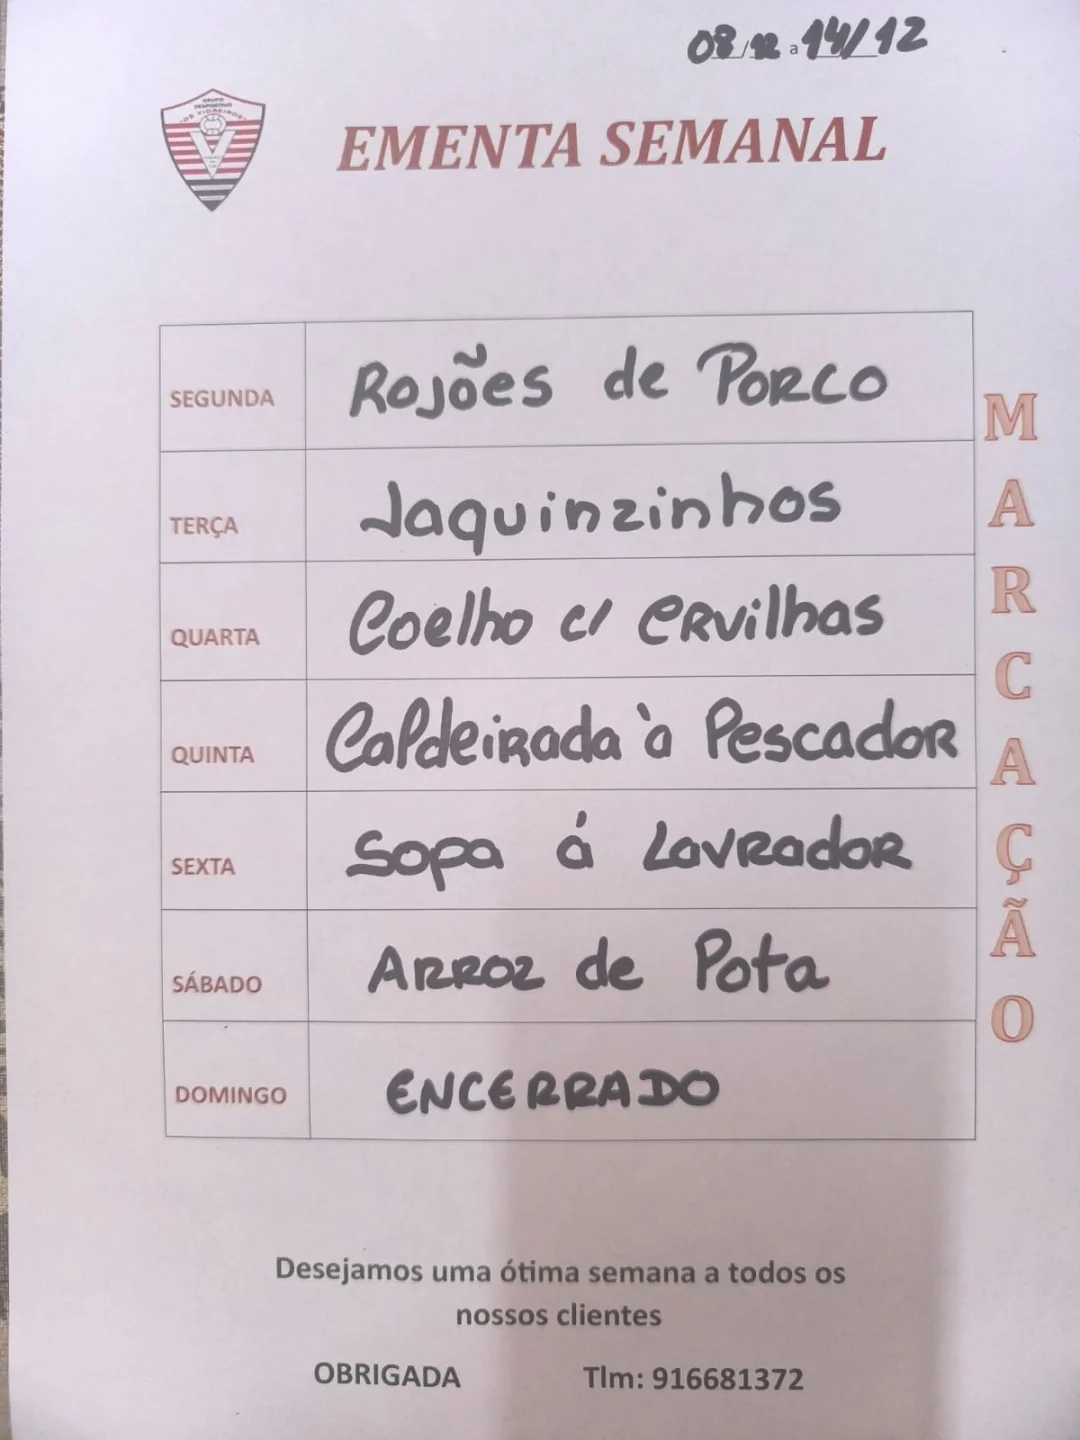 08/12 a 14/12
GRUPO
DESPORTIVO
EMENTA SEMANAL
SEGUNDA Rojões de Porco
TERÇA Jaquinzinhos
QUARTA Coelho c/ ervilhas
QUINTA Caldeirada à Pescador
SEXTA Sopa á Lavrador
SÁBADO Arroz de Pota
DOMINGO ENCERRADO
MARCAÇÃO
Desejamos uma ótima semana a todos os
nossos clientes
OBRIGADA Tlm: 916681372